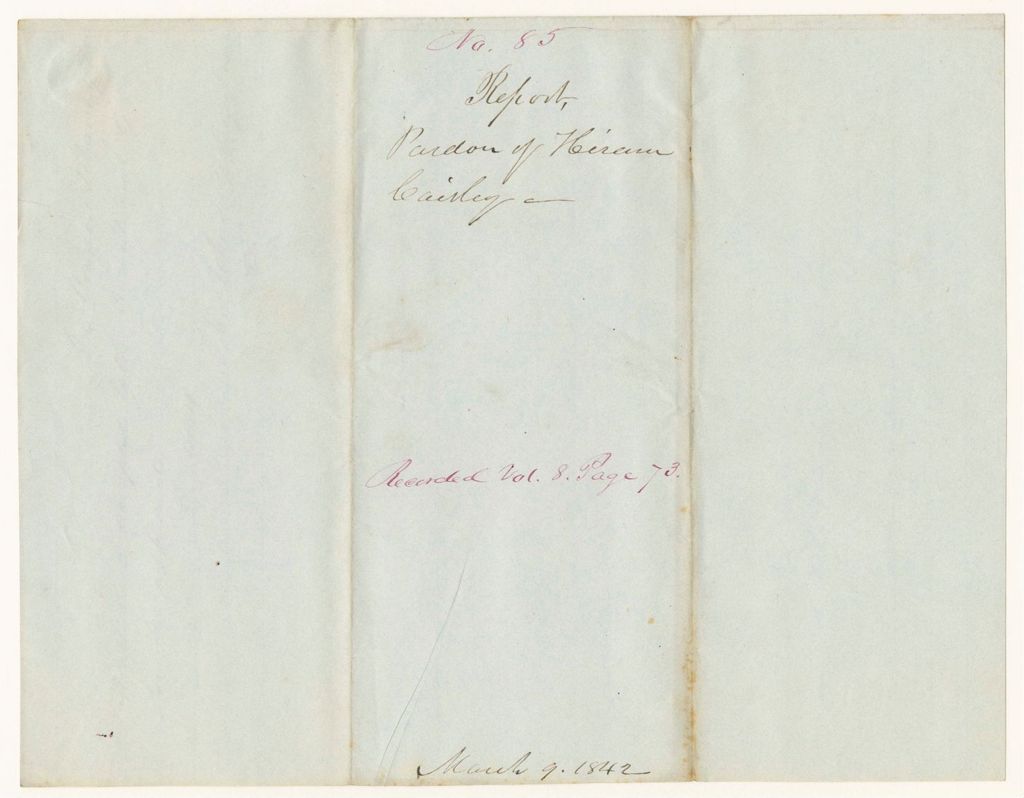 No. 85
Report,
Pardon of Hiram
Recorded Vol. 8. Page 73.
March 9. 1842